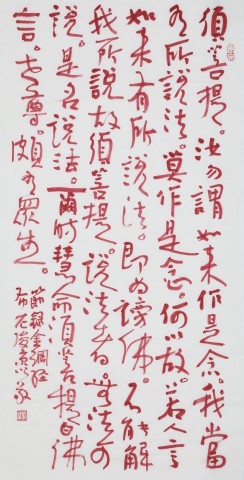 須菩提。汝勿謂如来作是念。我當
有所說法。莫作是念。何以故。若人言
如来有所說法。即為謗佛。不能解
我所說故。須菩提。說法者。無法可
說。是名說法。爾時慧命須菩提白佛
言。世尊。頗有眾生
節錄金剛經